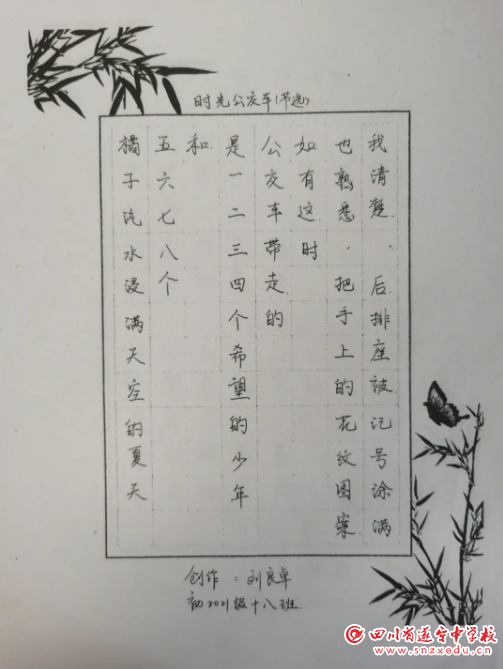 时光公交车(节选)
我清楚．后排座被记号涂满
也熟悉．把手上的花纹图案
如有这时
公交车带走的
是一二三四个希望的少年
和
五六七八个
橘子汽水浸满天空的夏天
创作：刘良卓
初2021级十八班
四川省遂宁中学校
www.snzxedu.cn